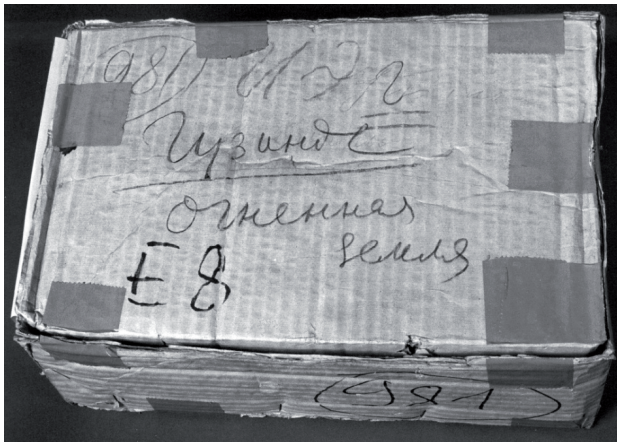 981
Гузинде
Огненная
земля
E 8
(981)